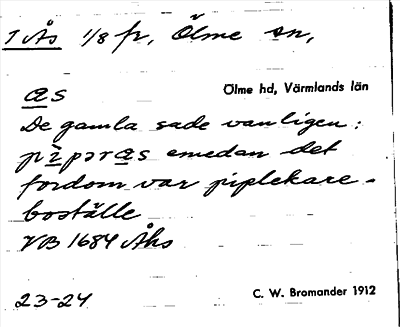 1 Ås 1/8 fr, Ölme sn,
Ölme hd, Värmlands län
æs
De gamla sade vanligen:
pìpəræs emedan det
fordom var piplekare-
boställe
VB 1684 Åhs
23-24
C. W. Bromander 1912